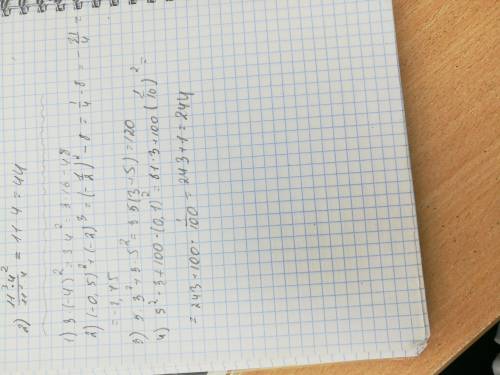 2) 11³·4² / = 11·4 = 44
1) 3·(-4)² = 3·4² = 3·16 = 48
2) (-0,5)² + (-2)³ = (-1/2)² - 8 = 1/4 - 8 = -31/4 =
= -7,75
3) 5·3² + 3·5² = 3·5(3+5) = 120
4) 9²·3 + 100·(0,1)² = 81·3 + 100·(1/10)² =
= 243 + 100·1/100 = 243 + 1 = 244